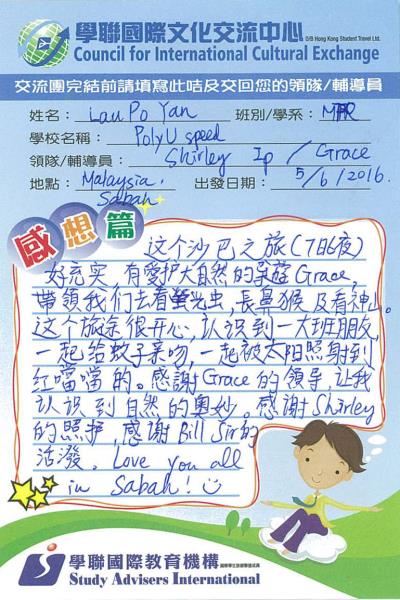 學聯國際文化交流中心 D/B Hong Kong Student Travel Ltd.
Council for International Cultural Exchange
交流團完結前請填寫此咭及交回您的領隊/輔導員
姓名： Lau Po Yan 班別/學系： MHR
學校名稱： PolyU speed
領隊/輔導員： Shirley Ip / Grace
地點： Malaysia, Sabah 出發日期： 5/6/2016.
感想篇
这个沙巴之旅(7日6夜)
好充实，有愛护大自然的導遊Grace,
帶領我们去看螢光虫，長鼻猴及看神山。
这个旅途很开心，认识到一大班朋友，
一起给蚊子亲吻，一起被太阳照射到
红噹噹的。感謝Grace的領导，让我
认识到自然的奧妙。感謝Shirley
的照护，感謝Bill Sir的
活潑。Love you all
in Sabah!
學聯國際教育機構
Study Advisers International